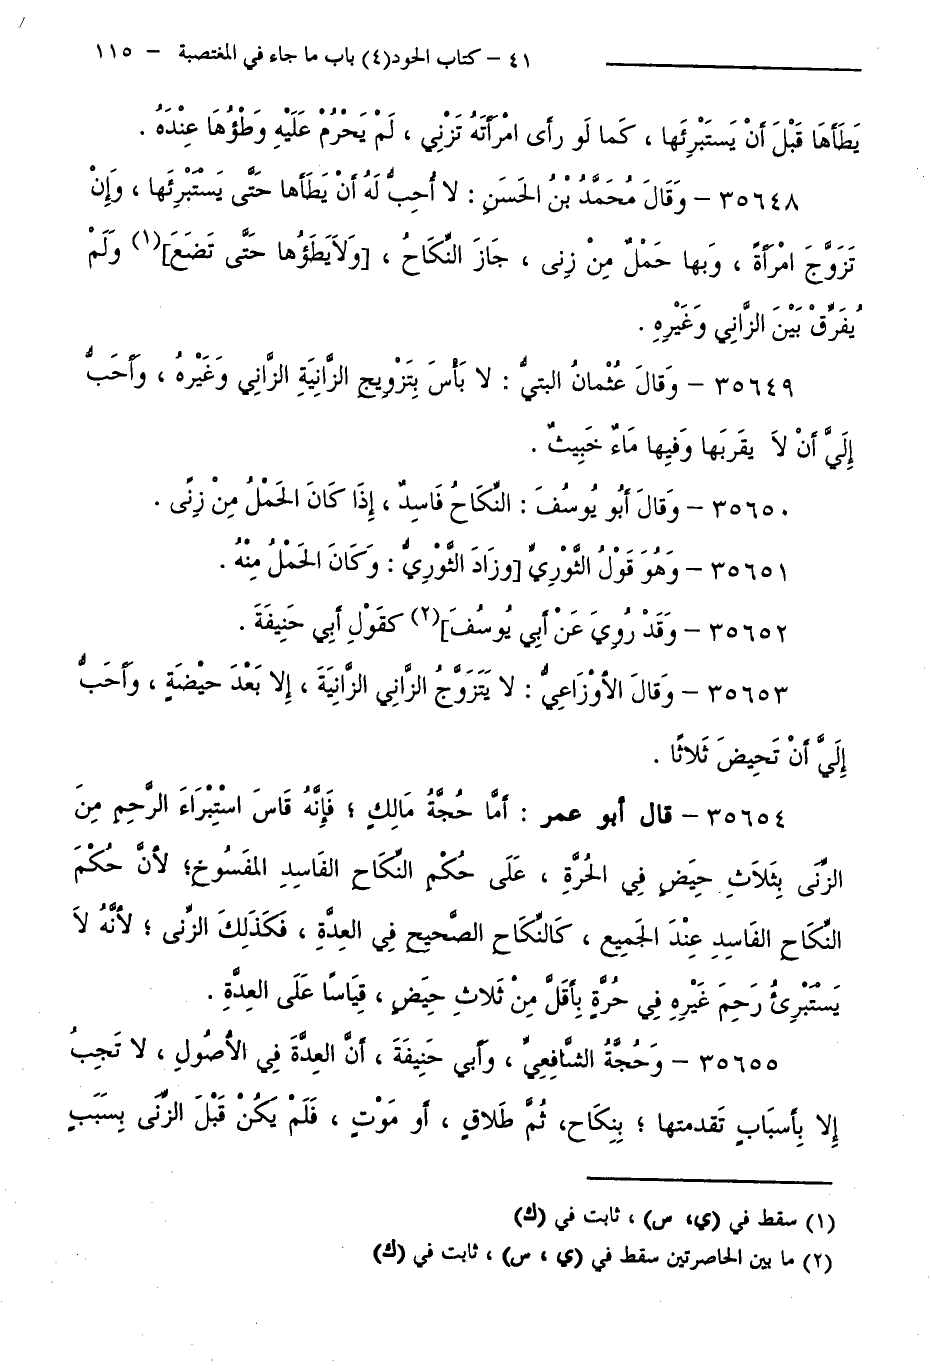 ٤١ – كتاب الحود(٤) باب ما جاء في المغتصبة – ١١٥
يَطَأَهَا قَبْلَ أَنْ يَستَبْرِئَها ، كَما لَو رَأى امْرَأَتَهُ تَزْنِي ، لَمْ يَحْرُمْ عَلَيْهِ وَطْؤُهَا عِنْدَهُ .
٣٥٦٤٨ – وَقَالَ مُحَمَّدُ بْنُ الحَسَنِ : لا أُحِبُّ لَهُ أَنْ يَطَأَها حَتَّى يَسْتَبْرِئَها ، وَإِنْ
تَزَوَّجَ امْرَأَةً ، وَبها حَمْلٌ مِنْ زِنى ، جَازَ النِّكَاحُ ، [وَلاَيَطَؤُها حَتَّى تَضَعَ](١) وَلَمْ
يُفَرِّقْ بَيْنَ الزَّانِي وَغَيْرِهِ .
٣٥٦٤٩ – وَقَالَ عُثْمانُ البتيُّ : لا بَأْسَ بِتَزْوِيجِ الزَّانِيَةِ الزَّانِي وَغَيْرهُ ، وَأَحَبُّ
إِلَيَّ أَنْ لاَ يقرَبَها وَفِيها مَاءٌ خَبِيثٌ .
٣٥٦٥٠ – وَقَالَ أَبُو يُوسُفَ : النِّكَاحُ فَاسِدٌ ، إِذَا كَانَ الحَمْلُ مِنْ زِنًى .
٣٥٦٥١ – وَهُوَ قَوْلُ الثَّوْرِيِّ [وزَادَ الثَّوْرِيُّ : وَكَانَ الحَمْلُ مِنْهُ .
٣٥٦٥٢ – وَقَدْ رُوِيَ عَنْ أَبِي يُوسُفَ](٢) كقَوْلِ أَبِي حَنِيفَةَ .
٣٥٦٥٣ – وَقَالَ الأوْزَاعِيُّ : لا يَتَزَوَّجُ الزَّانِي الزَّانِيَةَ ، إِلا بَعْدَ حَيْضَةٍ ، وَأَحَبُّ
إِلَيَّ أَنْ تَحِيضَ ثَلاثًا .
٣٥٦٥٤ – قال أبو عمر : أمَّا حُجَّةُ مَالِكٍ ؛ فَإِنَّهُ قَاسَ اسْتِبْرَاءَ الرَّحِمِ مِنَ
الزِّنَى بِثَلاَثِ حِيَضٍ فِي الحُرَّةِ ، عَلَى حُكْمِ النِّكَاحِ الفَاسِدِ المَفْسُوخِ؛ لأَنَّ حُكْمَ
النِّكَاحِ الفَاسِدِ عِنْدَ الجَمِيعِ ، كَالنِّكَاحِ الصَّحِيحِ فِي العِدَّةِ ، فَكَذَلِكَ الزِّنى ؛ لأَنَّهُ لاَ
يَسْتَبْرِئُ رَحِمَ غَيْرِهِ فِي حُرَّةٍ بِأَقَلَّ مِنْ ثَلاثِ حِيَضٍ ، قِيَاسًا عَلَى العِدَّةِ .
٣٥٦٥٥ – وَحُجَّةُ الشَّافِعِيِّ ، وَأَبي حَنِيفَةَ ، أَنَّ العِدَّةَ فِي الأُصُولِ ، لا تَجِبُ
إِلا بِأَسبَابٍ تَقدمتها ؛ بِنِكَاحٍ، ثُمَّ طَلَاقٍ ، أَو مَوْتٍ ، فَلَمْ يَكُنْ قَبْلَ الزِّنَى بِسَبَبٍ
(١) سقط في (ي، س) ، ثابت في (ك)
(٢) ما بين الحاصرتين سقط في (ي ، س) ، ثابت في (ك)